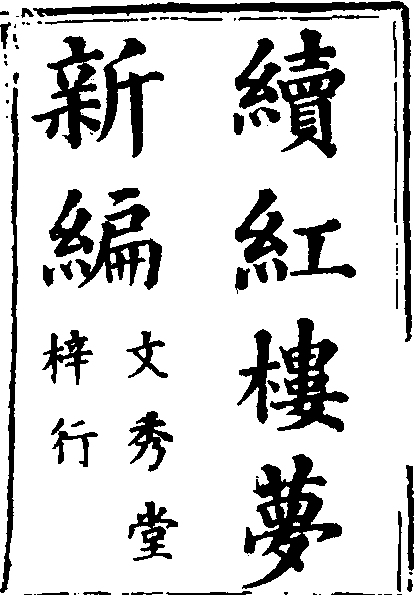 續紅樓夢
新編
文秀堂
梓行